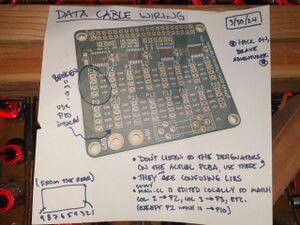 DATA CABLE WIRING
3/30/24
HACK ON,
BRAVE
ADVENTURER
BROKEN
USE
P10
INSTEAD
(FROM THE REAR)
9 8 7 6 5 4 3 2 1
• DON'T LISTEN TO THE DESIGNATORS
ON THE ACTUAL PCBA, USE THESE
• THEY ARE CONFUSING LIES
IS EDITED LOCALLY TO MATCH
COL 1 → P2, COL 2 → P3, ETC.
(EXCEPT P2 WHICH IS → P10)